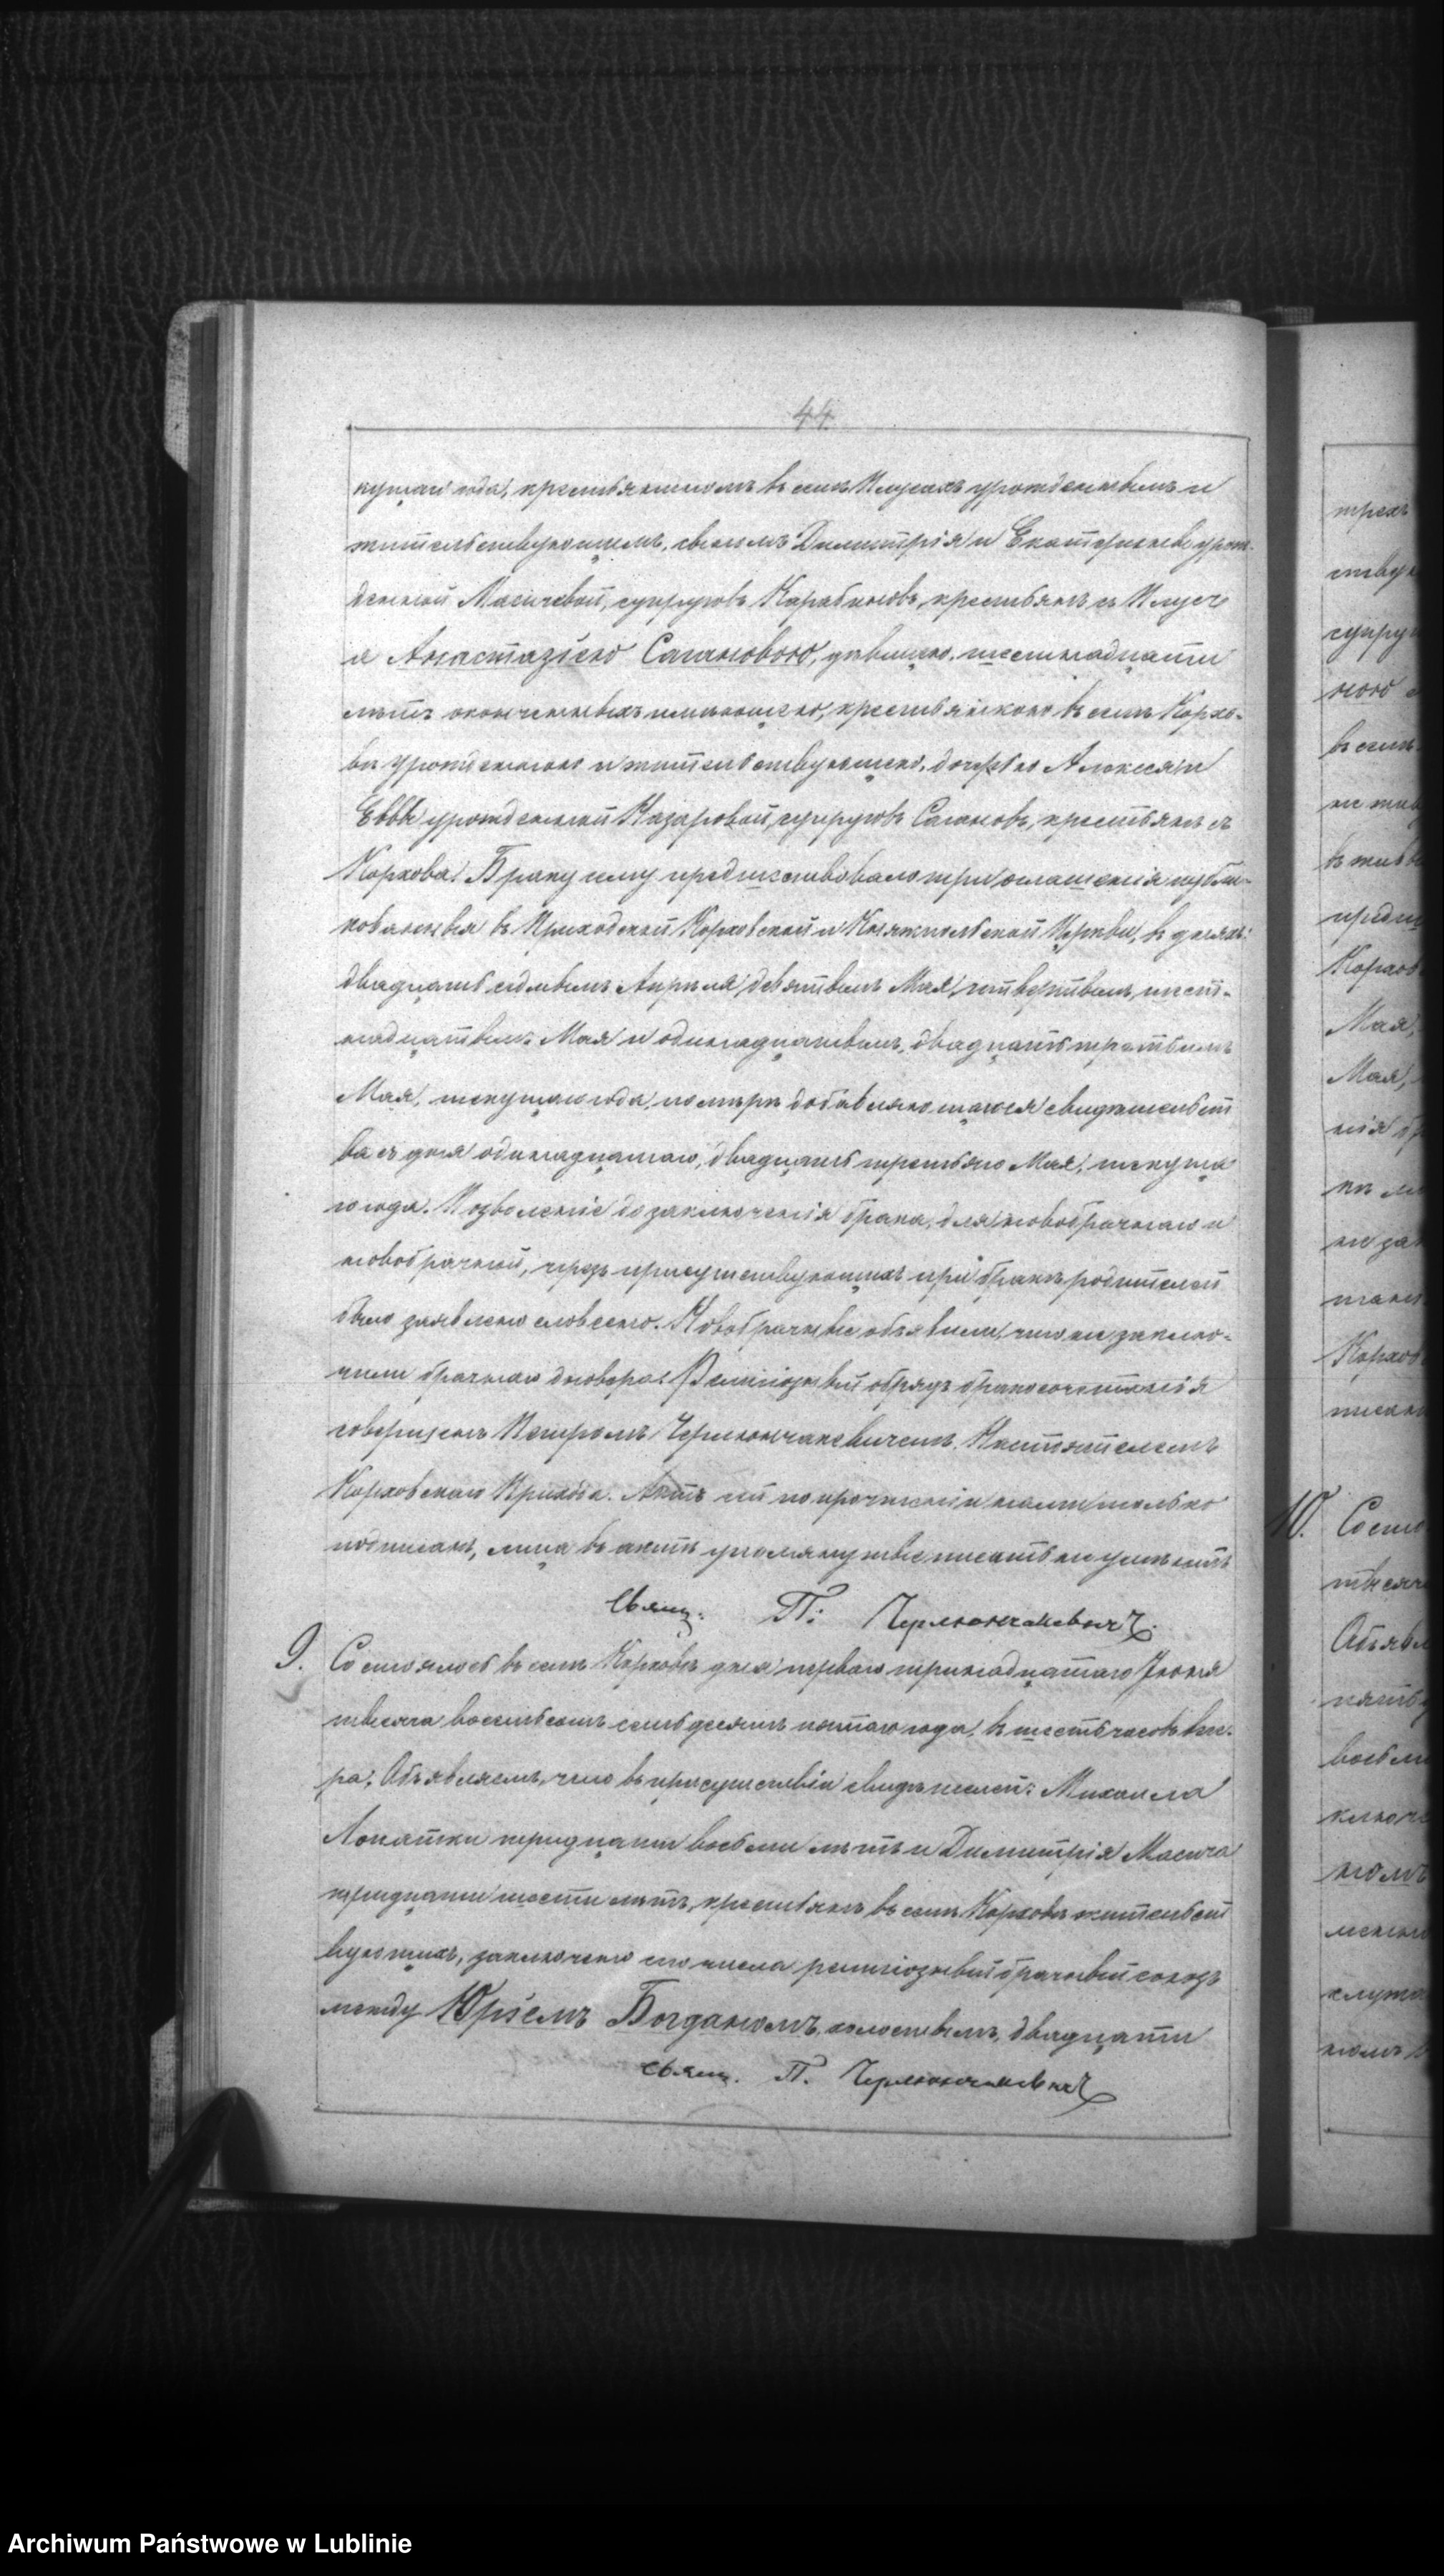 44
кущаго года, крестьяниномъ въ селѣ Плусахъ урожденнымъ и
жительствующемъ, сыномъ Димитрія и Екатерины урож-
денной Масичевой, супруговъ Карабиновъ, крестьянъ съ Плусъ
и Анастазіею Сагановою, дѣвицею, шестнадцати
лѣтъ оконченныхъ имѣющею, крестьянкою въ селѣ Корхо-
вѣ урожденною и жительствующею, дочерью Алексѣя и
Еввы урожденной Назаровой, супруговъ Сагановъ, крестьянъ съ
Корхова. Браку сему предшествовало три оглашенія публи-
кованныя въ Приходской Корховской и Княжпольской Церкви, въ дняхъ:
двадцать седьмымъ Апрѣля, девятымъ Мая, четвертымъ, шест-
надцатымъ Мая и одинадцатымъ, двадцать третьимъ
Мая, текущаго года, по мѣрѣ добавляющагося свидѣтельст
ва съ дня одинадцатаго, двадцать третьяго Мая, текуща
го года. Позволеніе до заключенія брака, для новобрачнаго и
новобрачной, чрезъ присутствующихъ при бракѣ родителей
было заявлено словесно. Новобрачные объявили, что не заклю-
чили брачнаго договора. Религіозный обрядъ бракосочетанія
совершенъ Петромъ Черлюнчакевичемъ, Настоятелемъ
Корховскаго Прихода. Актъ сей по прочтеніи нами только
подписанъ, лица въ актѣ упомянутые писать не умѣютъ
Свящ. П: Черлюнчакевичъ.
9. Состоялось въ селѣ Корховѣ дня перваго тринадцатаго Іюня
тысяча восемьсотъ семьдесятъ пятаго года, въ шесть часовъ вече-
ра. Объявляемъ, что въ присутствіи свидѣтелей: Михаила
Лопатки тридцати восьми лѣтъ и Димитрія Масича
тридцати шести лѣтъ, крестьянъ въ селѣ Корховѣ жительст
вующихъ, заключено сего числа религіозный брачный союзъ
между Юріемъ Богданомъ, холостымъ, двадцати
Свящ. П. Черлюнчакевичъ
трехъ
ству
супру
ною
въ сел
предш
Корхов
Мая,
Мая,
нія
Корхов
10. Состо
тысяч
Объявл
пять
восьми
ключе
номъ
Archiwum Państwowe w Lublinie